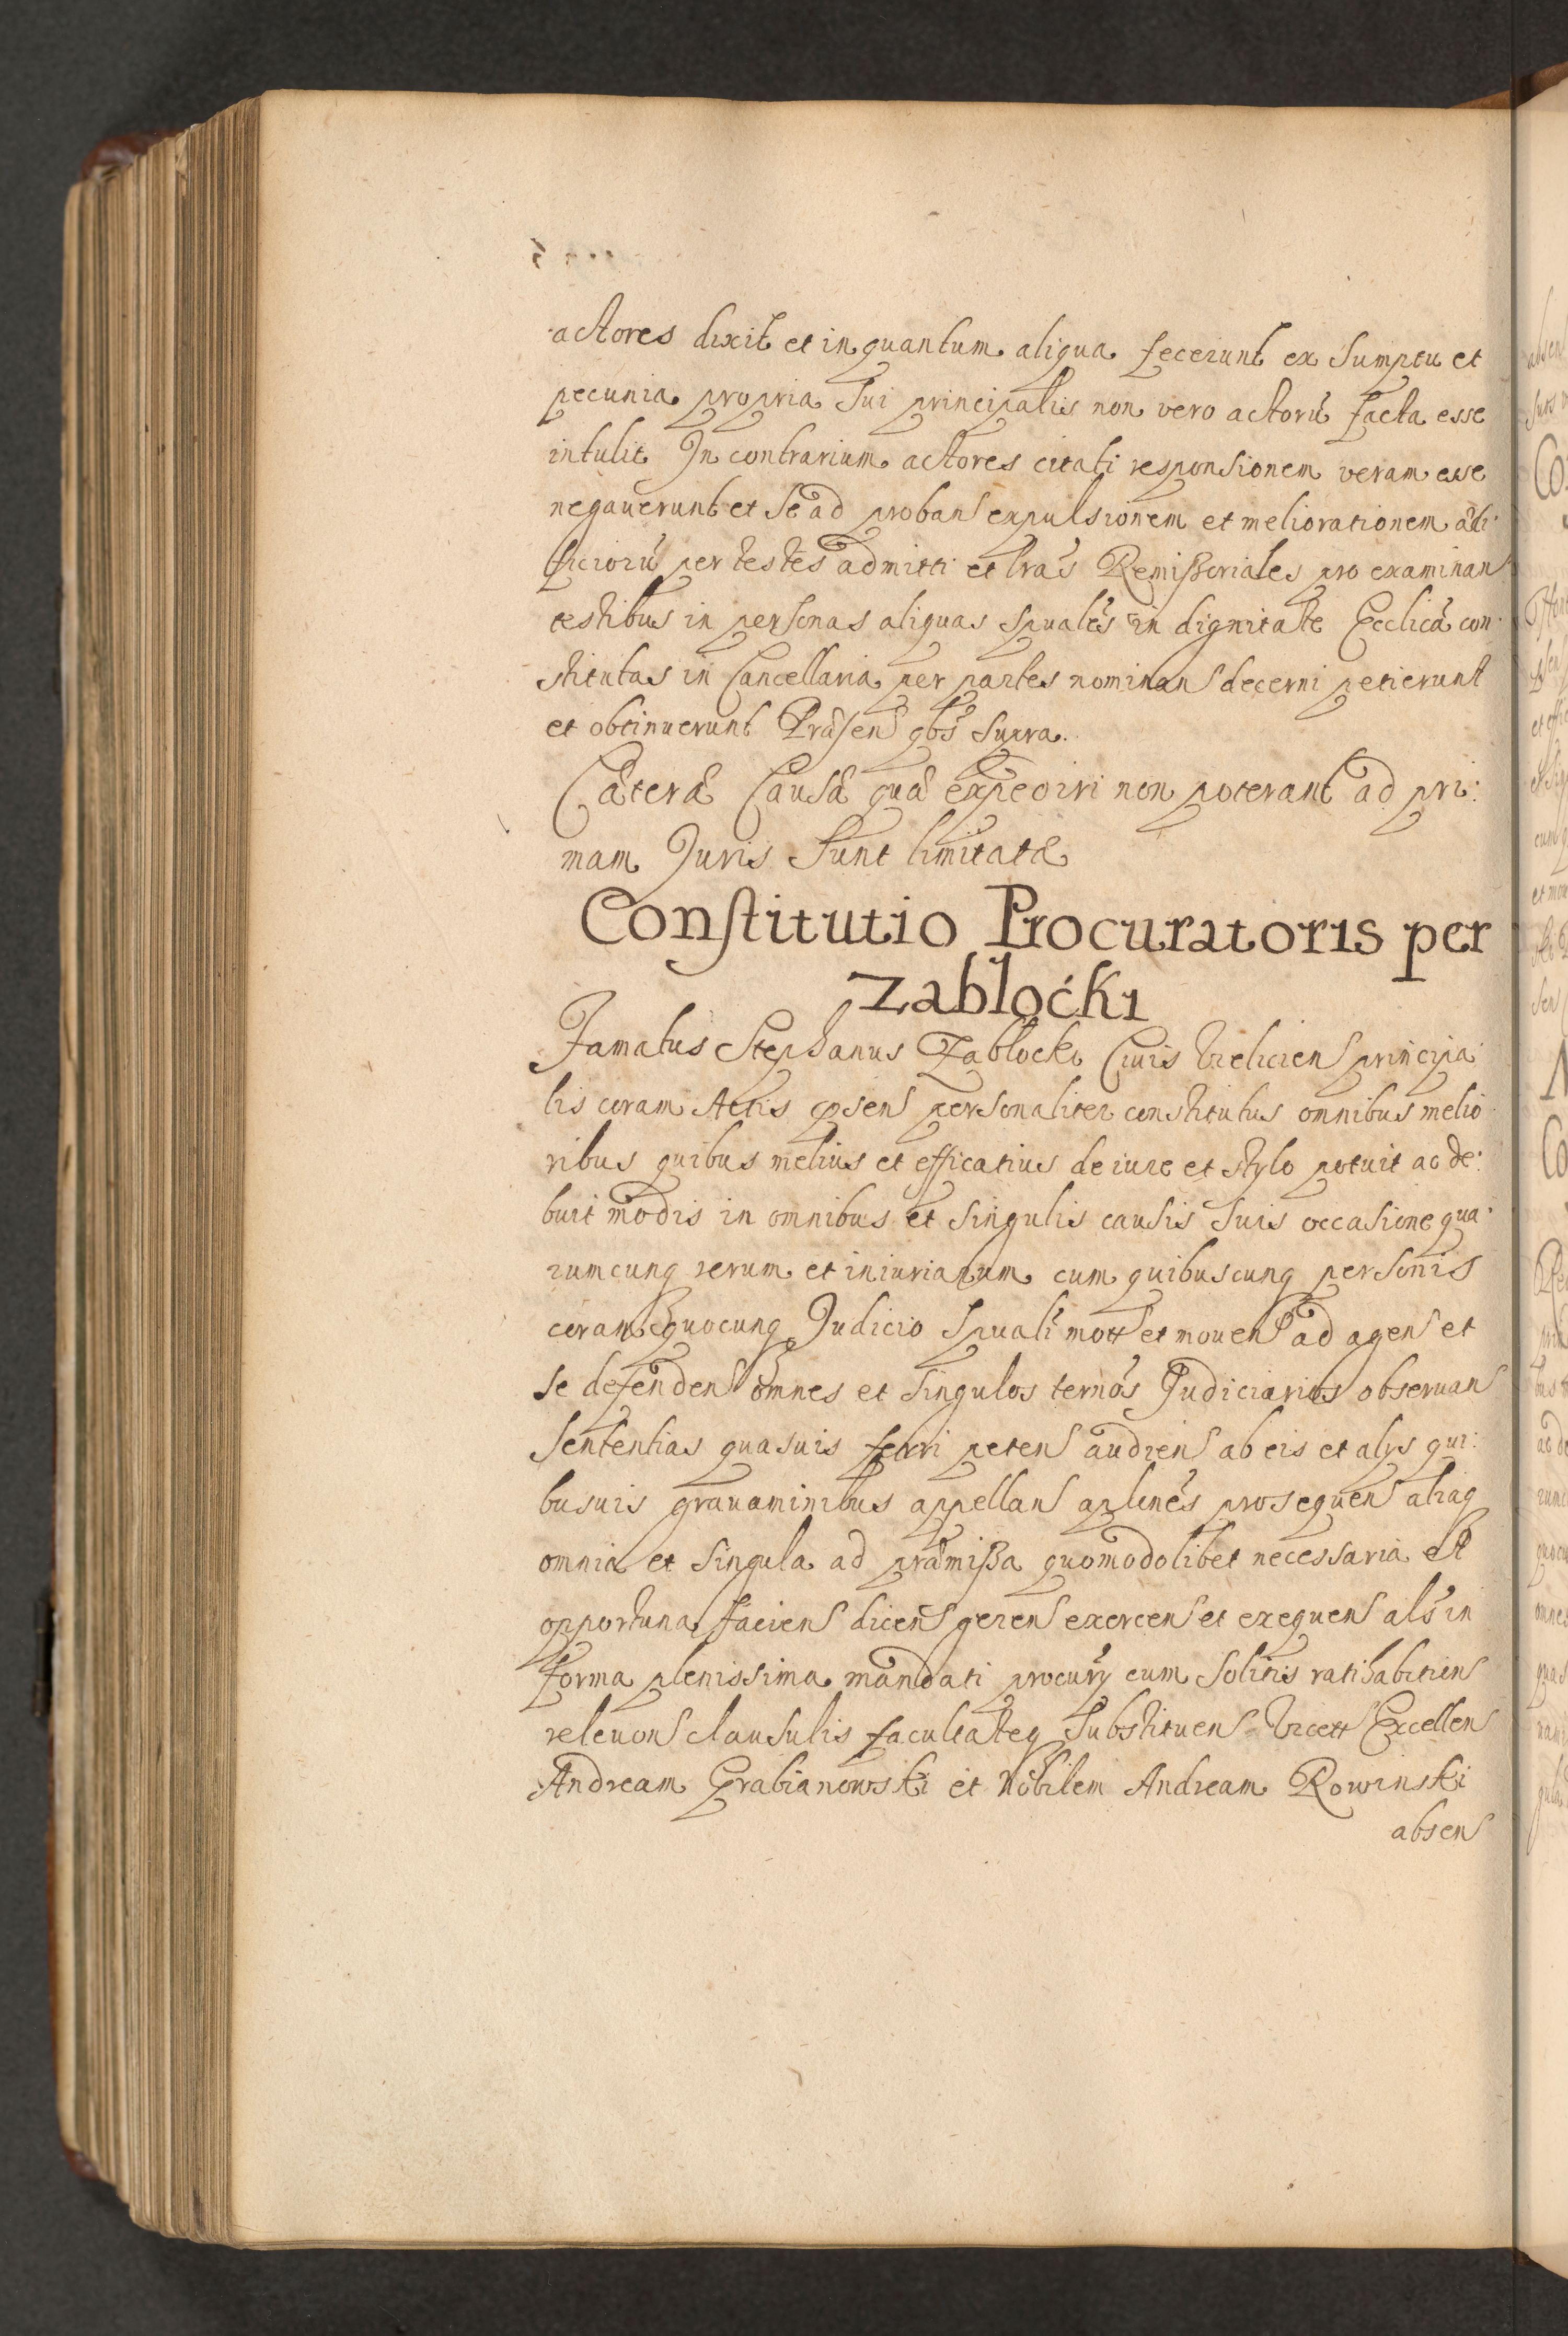 actores dixit et in quantum aliqua fecerunt ex sumptu et
pecunia propria sui principalis non vero actorū facta esse
intulit In contrarium actores citati responsionem veram esse
negaverunt et se ad proban expulsionem et meliorationem ædi:
ficiorū per testes admitti et lras Remissoriales pro examinan
testibus in personas aliquas spuales in dignitate Ecclica con:
stitutas in Cancellaria per partes nominan decerni petierunt
et obtinuerunt Præsen qbs supra.
Cæteræ Causæ quæ expediri non poterant ad pri:
mam Juris sunt limitatæ
Constitutio Procuratoris per
Zabloćki
Famatus Stephanus Zablocki Civis Vielicien principa:
lis coram Actis psen personaliter constitutus omnibus melio:
ribus quibus melius et efficatius de iure et stylo potuit ac de:
buit modis in omnibus et singulis causis suis occasione qua:
rumcunq rerum et iniuriarum cum quibuscunq personis
coram quocunq Judicio spuali mott et moven ad agen et
se defenden omnes et singulos ternos Judiciarios observan
sententias quasuis ferri peten audien ab eis et alys qui:
busuis gravaminibus appellan aplnes prosequen aliaq
omnia et singula ad præmissa quomodolibet necessaria et
opportuna facien dicen geren exercen et exequen als in
forma plenissima mandati procury cum solitis ratihabition
relevon clausulis facultateq substituen Vicett Excellen
Andream Grabianowski et Nobilem Andream Rowinski
absen